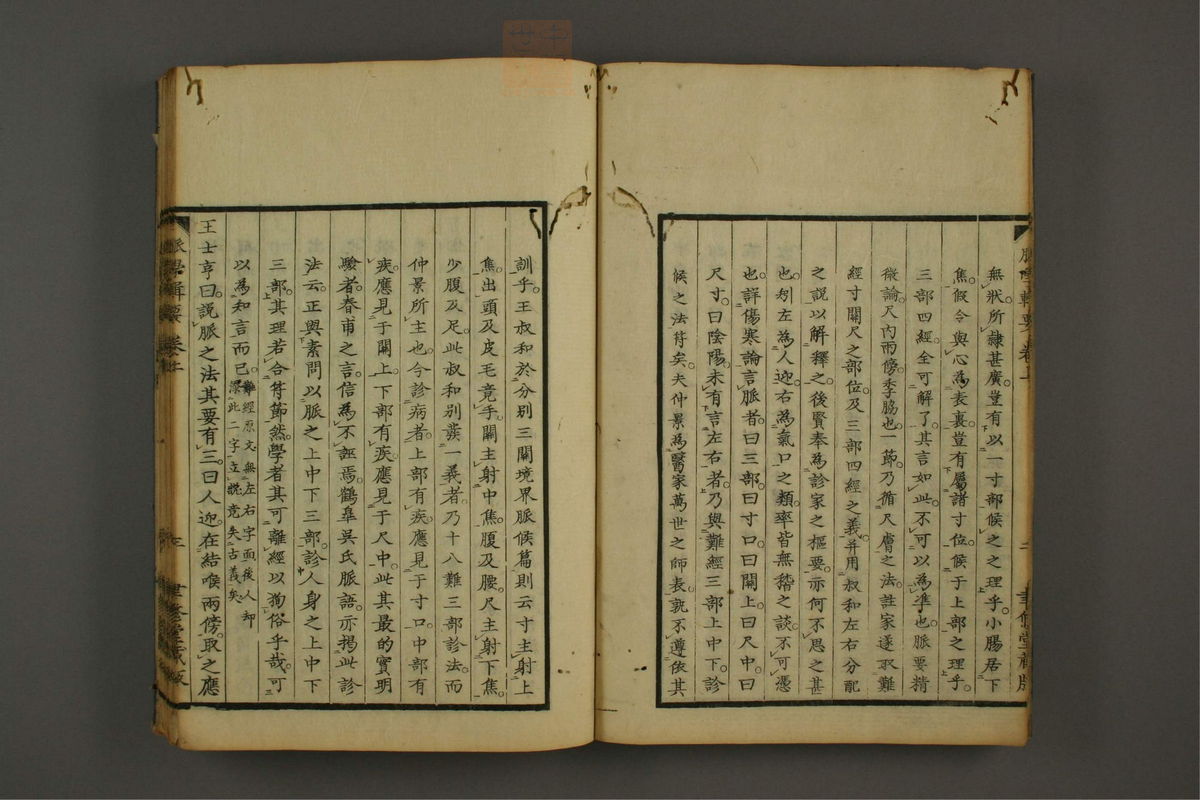 無狀所隸甚廣豈有以一寸部候之之理乎小腸居下
焦假令與心為表裏豈有屬諸寸位候于上部之理乎
三部四經全可解了其言如此不可以為準也脈要精
微論尺內兩傍季脇也一節乃循尺膚之法註家遂取難
經寸關尺之部位及三部四經之義并用叔和左右分配
之說以解釋之後賢奉為診家之樞要亦何不思之甚
也如左為人迎右為氣口之類率皆無稽之談不可憑
也詳傷寒論言脈者曰三部曰寸口曰關上曰尺中曰
尺寸曰陰陽未有言左右者乃與難經三部上中下診
候之法符矣夫仲景為醫家萬世之師表孰不遵依其
訓乎王叔和於分別三關境界脈候篇則云寸主射上
焦出頭及皮毛竟手關主射中焦腹及腰尺主射下焦
少腹及足此叔和別發一義者乃十八難三部診法而
仲景所主也今診病者上部有疾應見于寸口中部有
疾應見于關上下部有疾應見于尺中此其最的實明
驗者春甫之言信為不誣焉鶴皋吳氏脈語亦揭此診
法云正與素問以脈之上中下三部診人身之上中下
三部其理若合符節然學者其可離經以狥俗乎哉可
以為知言而已難經原文無左右字面後人却
深此二字立說竟失古義矣
王士亨曰說脈之法其要有三曰人迎在結喉兩傍取之應
脈學輯要 卷上
三 聿修堂藏版